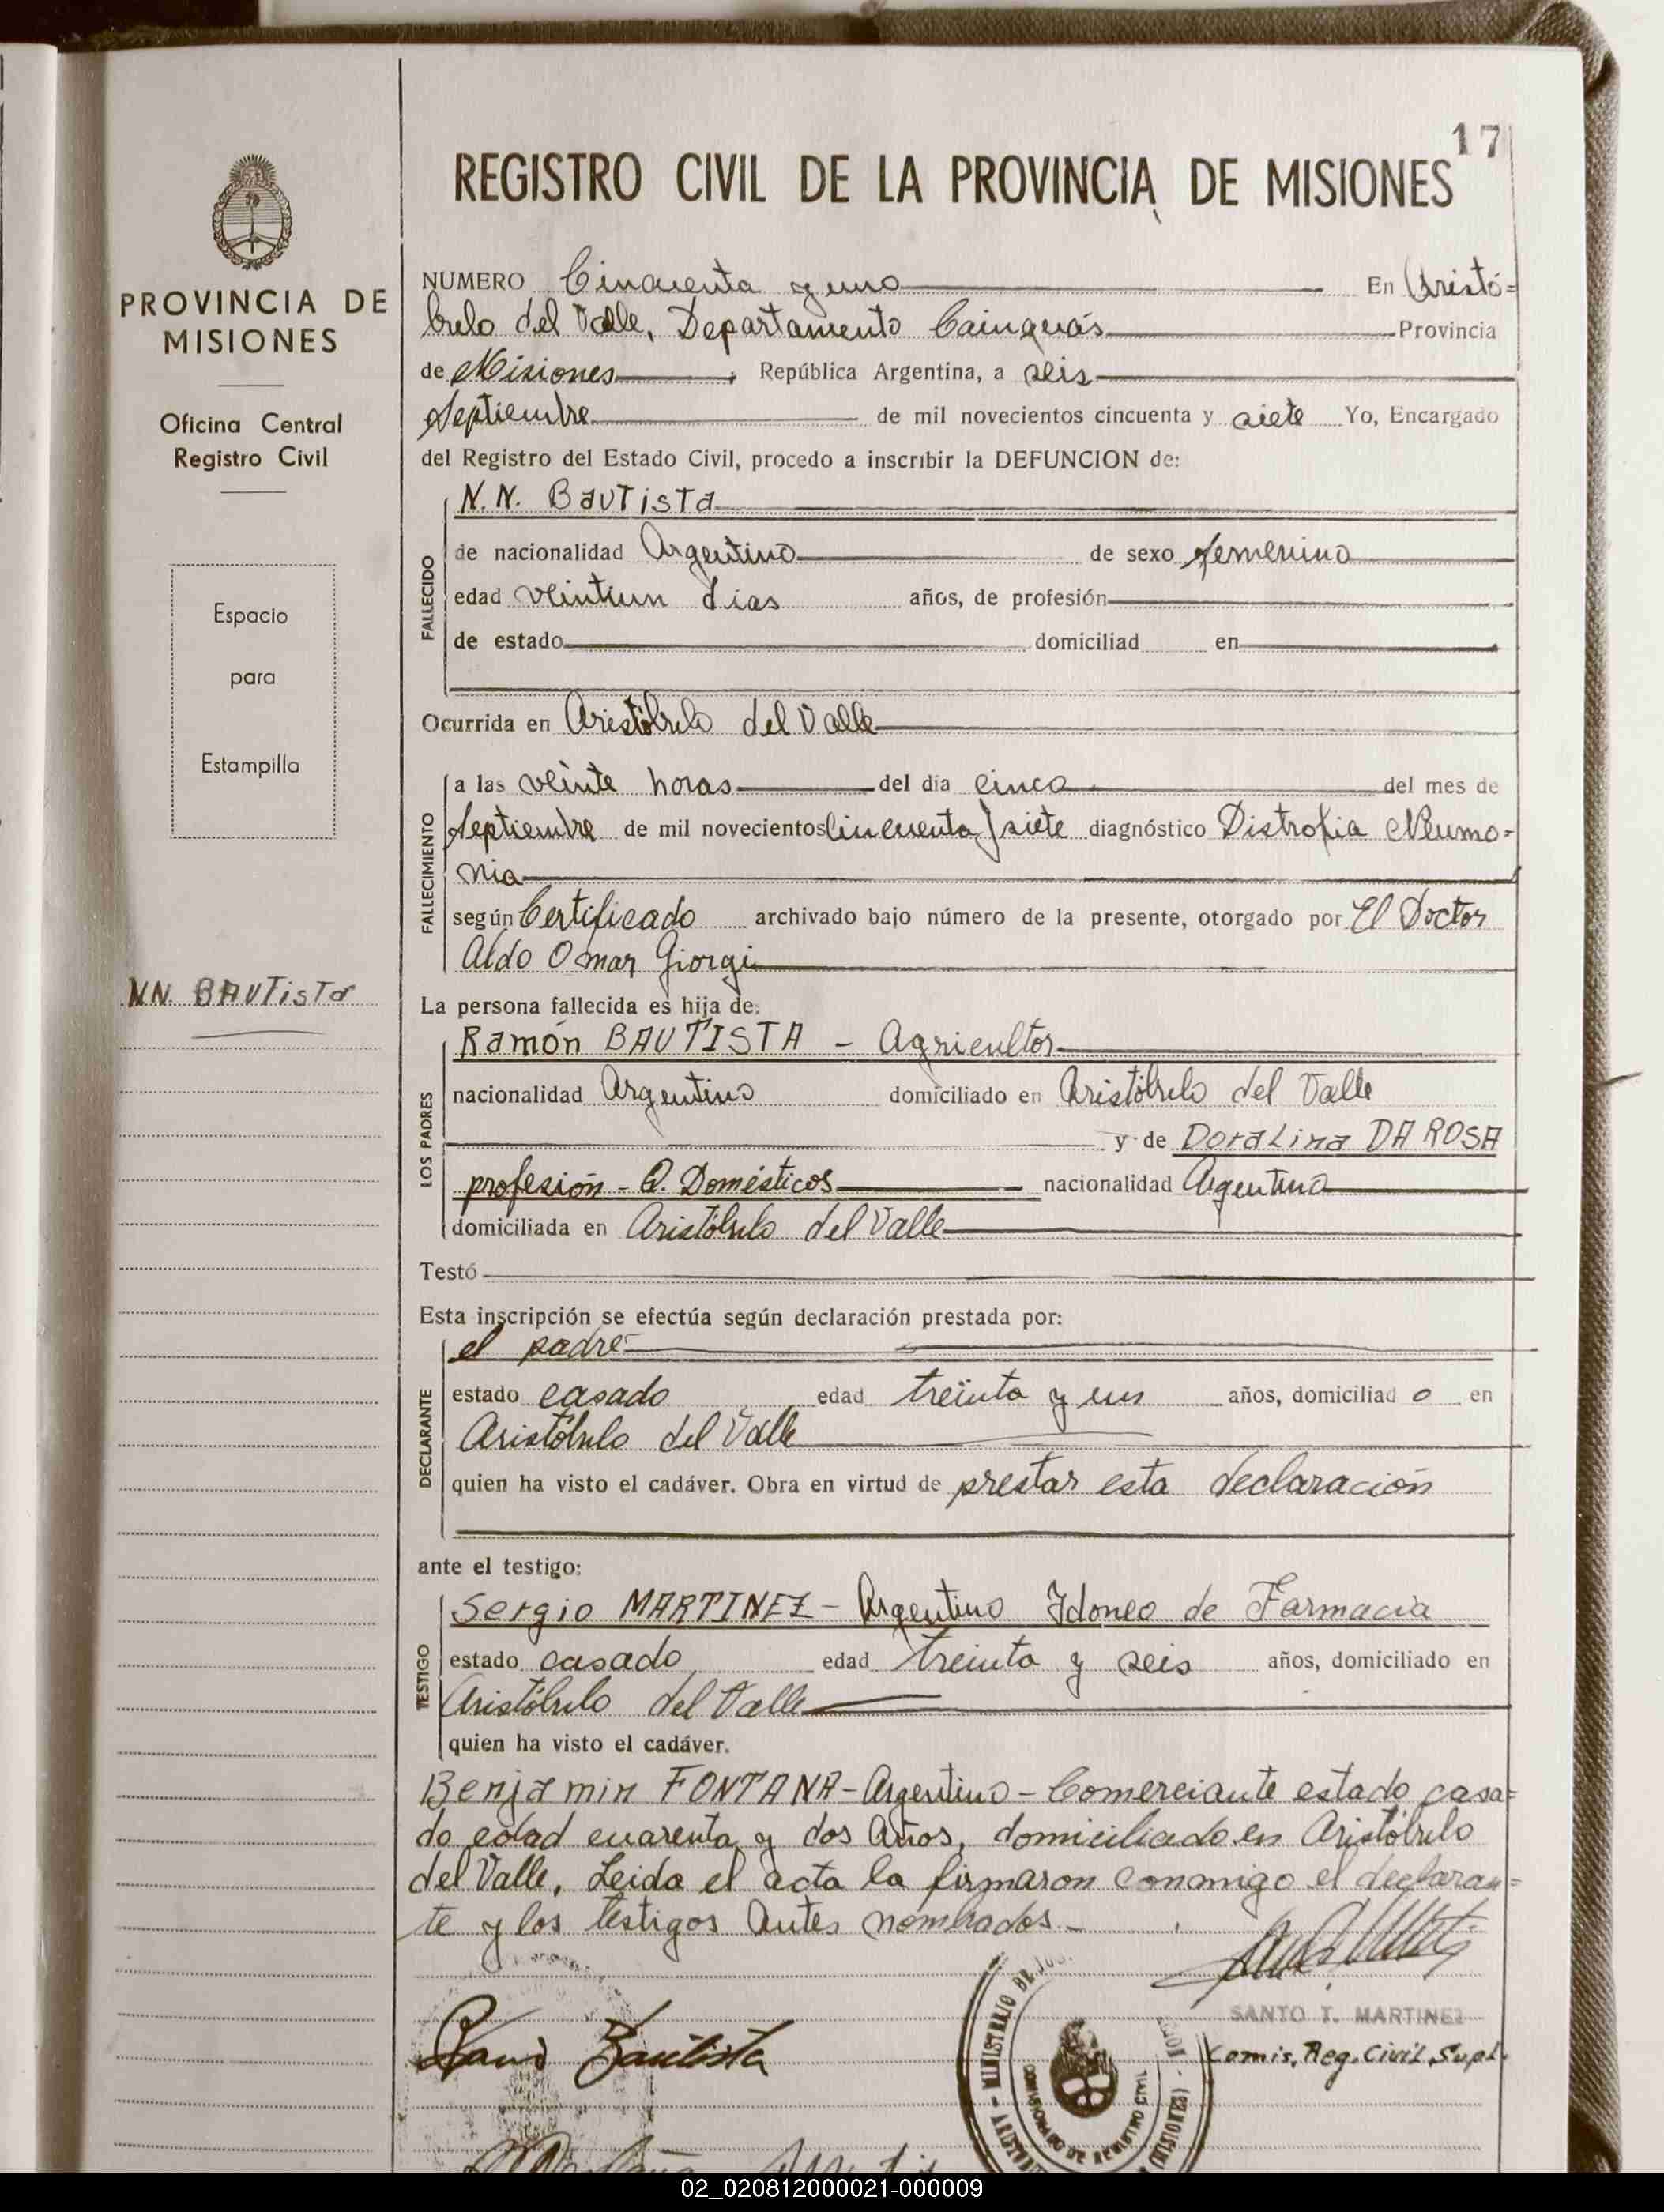 17
REGISTRO CIVIL DE LA PROVINCIA DE MISIONES
PROVINCIA DE
MISIONES
Oficina Central
Registro Civil
Espacio
para
Estampilla
N.N. BAUTista
NUMERO Cincuenta y uno En Aristó=
bulo del Valle, Departamento Cainguás Provincia
de Misiones, República Argentina, a seis
Septiembre de mil novecientos cincuenta y siete Yo, Encargado
del Registro del Estado Civil, procedo a inscribir la DEFUNCION de:
FALLECIDO
N.N. BAUTista
de nacionalidad Argentino de sexo femenino
edad veintiun días años, de profesión
de estado domiciliad en
Ocurrida en Aristóbulo del Valle
FALLECIMIENTO
a las veinte horas del día cinco del mes de
Septiembre de mil novecientos cincuenta y siete diagnóstico Distrofia Neumo-
nia
según Certificado archivado bajo número de la presente, otorgado por El Doctor
Aldo Omar Giorgi
La persona fallecida es hija de:
LOS PADRES
Ramón BAUTISTA - Agricultor
nacionalidad Argentino domiciliado en Aristóbulo del Valle
y de DoraLina DA ROSA
profesión - Q. Domésticos nacionalidad Argentina
domiciliada en Aristóbulo del Valle
Testó
Esta inscripción se efectúa según declaración prestada por:
DECLARANTE
el padre
estado casado edad treinta y un años, domiciliad o en
Aristóbulo del Valle
quien ha visto el cadáver. Obra en virtud de prestar esta declaración
ante el testigo:
TESTIGO
Sergio MARTINEZ - Argentino Idoneo de Farmacia
estado casado edad treinta y seis años, domiciliado en
Aristóbulo del Valle
quien ha visto el cadáver.
Benjamin FONTANA - Argentino - Comerciante estado casa=
do edad cuarenta y dos Años, domiciliado en Aristóbulo
del Valle, Leida el acta la firmaron conmigo el declaran=
te y los testigos antes nombrados.-
SANTO T. MARTINEZ
Comis. Reg. Civil Supl.
Bautista
MINISTERIO DE
COMISIONADO DE REGISTRO CIVIL
(MISIONES)
02_020812000021-000009